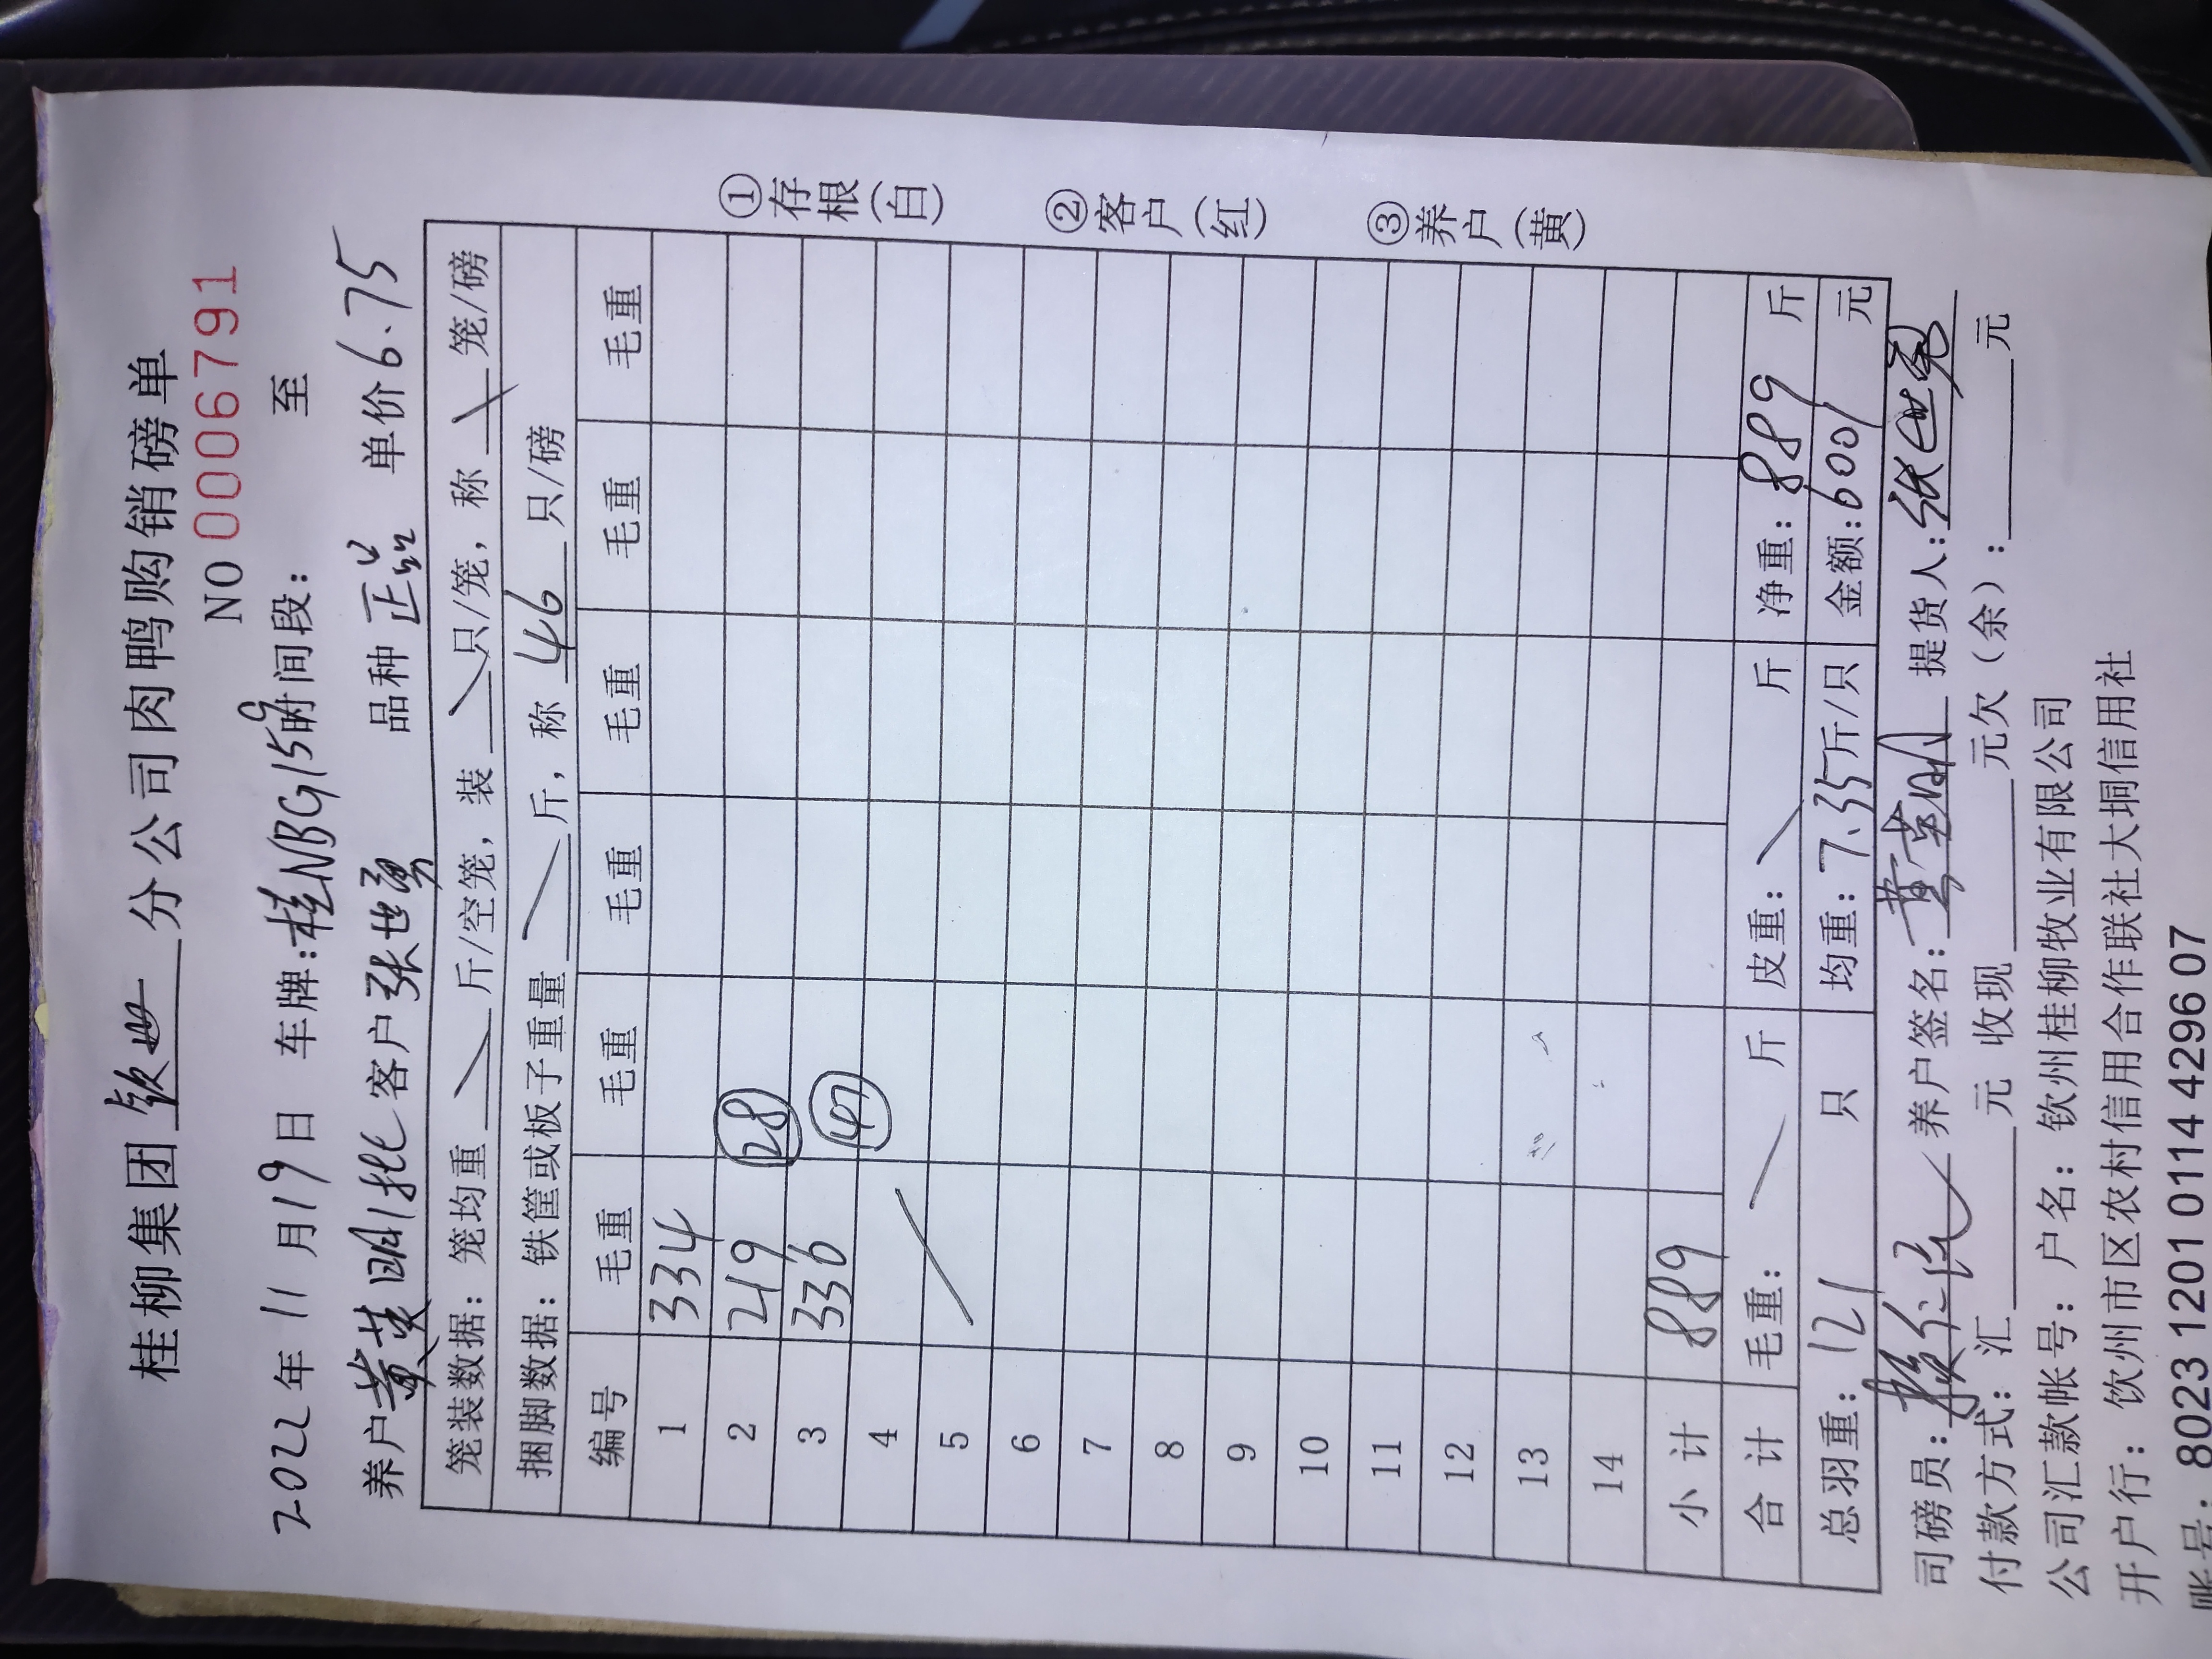 桂柳集团 钦州 分公司肉鸭购销磅单
NO 0006791
2022年11月19日 车牌:桂NBG159 时间段: 至
养户 黄英明批 客户 张世勇 品种 正品 单价 6.75
笼装数据:笼均重 斤/空笼,装 只/笼,称 笼/磅
捆脚数据:铁筐或板子重量 斤,称 46 只/磅
编号 毛重 毛重 毛重 毛重 毛重 毛重
1 334
2 219 28
3 336 47
4
5
6
7
8
9
10
11
12
13
14
小计 889
合计 毛重: 斤 皮重: 斤 净重:889 斤
总羽重:121 只 均重:7.35斤/只 金额:6001 元
①存根(白)
②客户(红)
③养户(黄)
司磅员: 养户签名:黄英明 提货人:张世勇
付款方式:汇 元 收现 元欠(余): 元
公司汇款帐号:户名:钦州桂柳牧业有限公司
开户行:钦州市区农村信用合作联社大垌信用社
账号:8023 1201 0114 4296 07